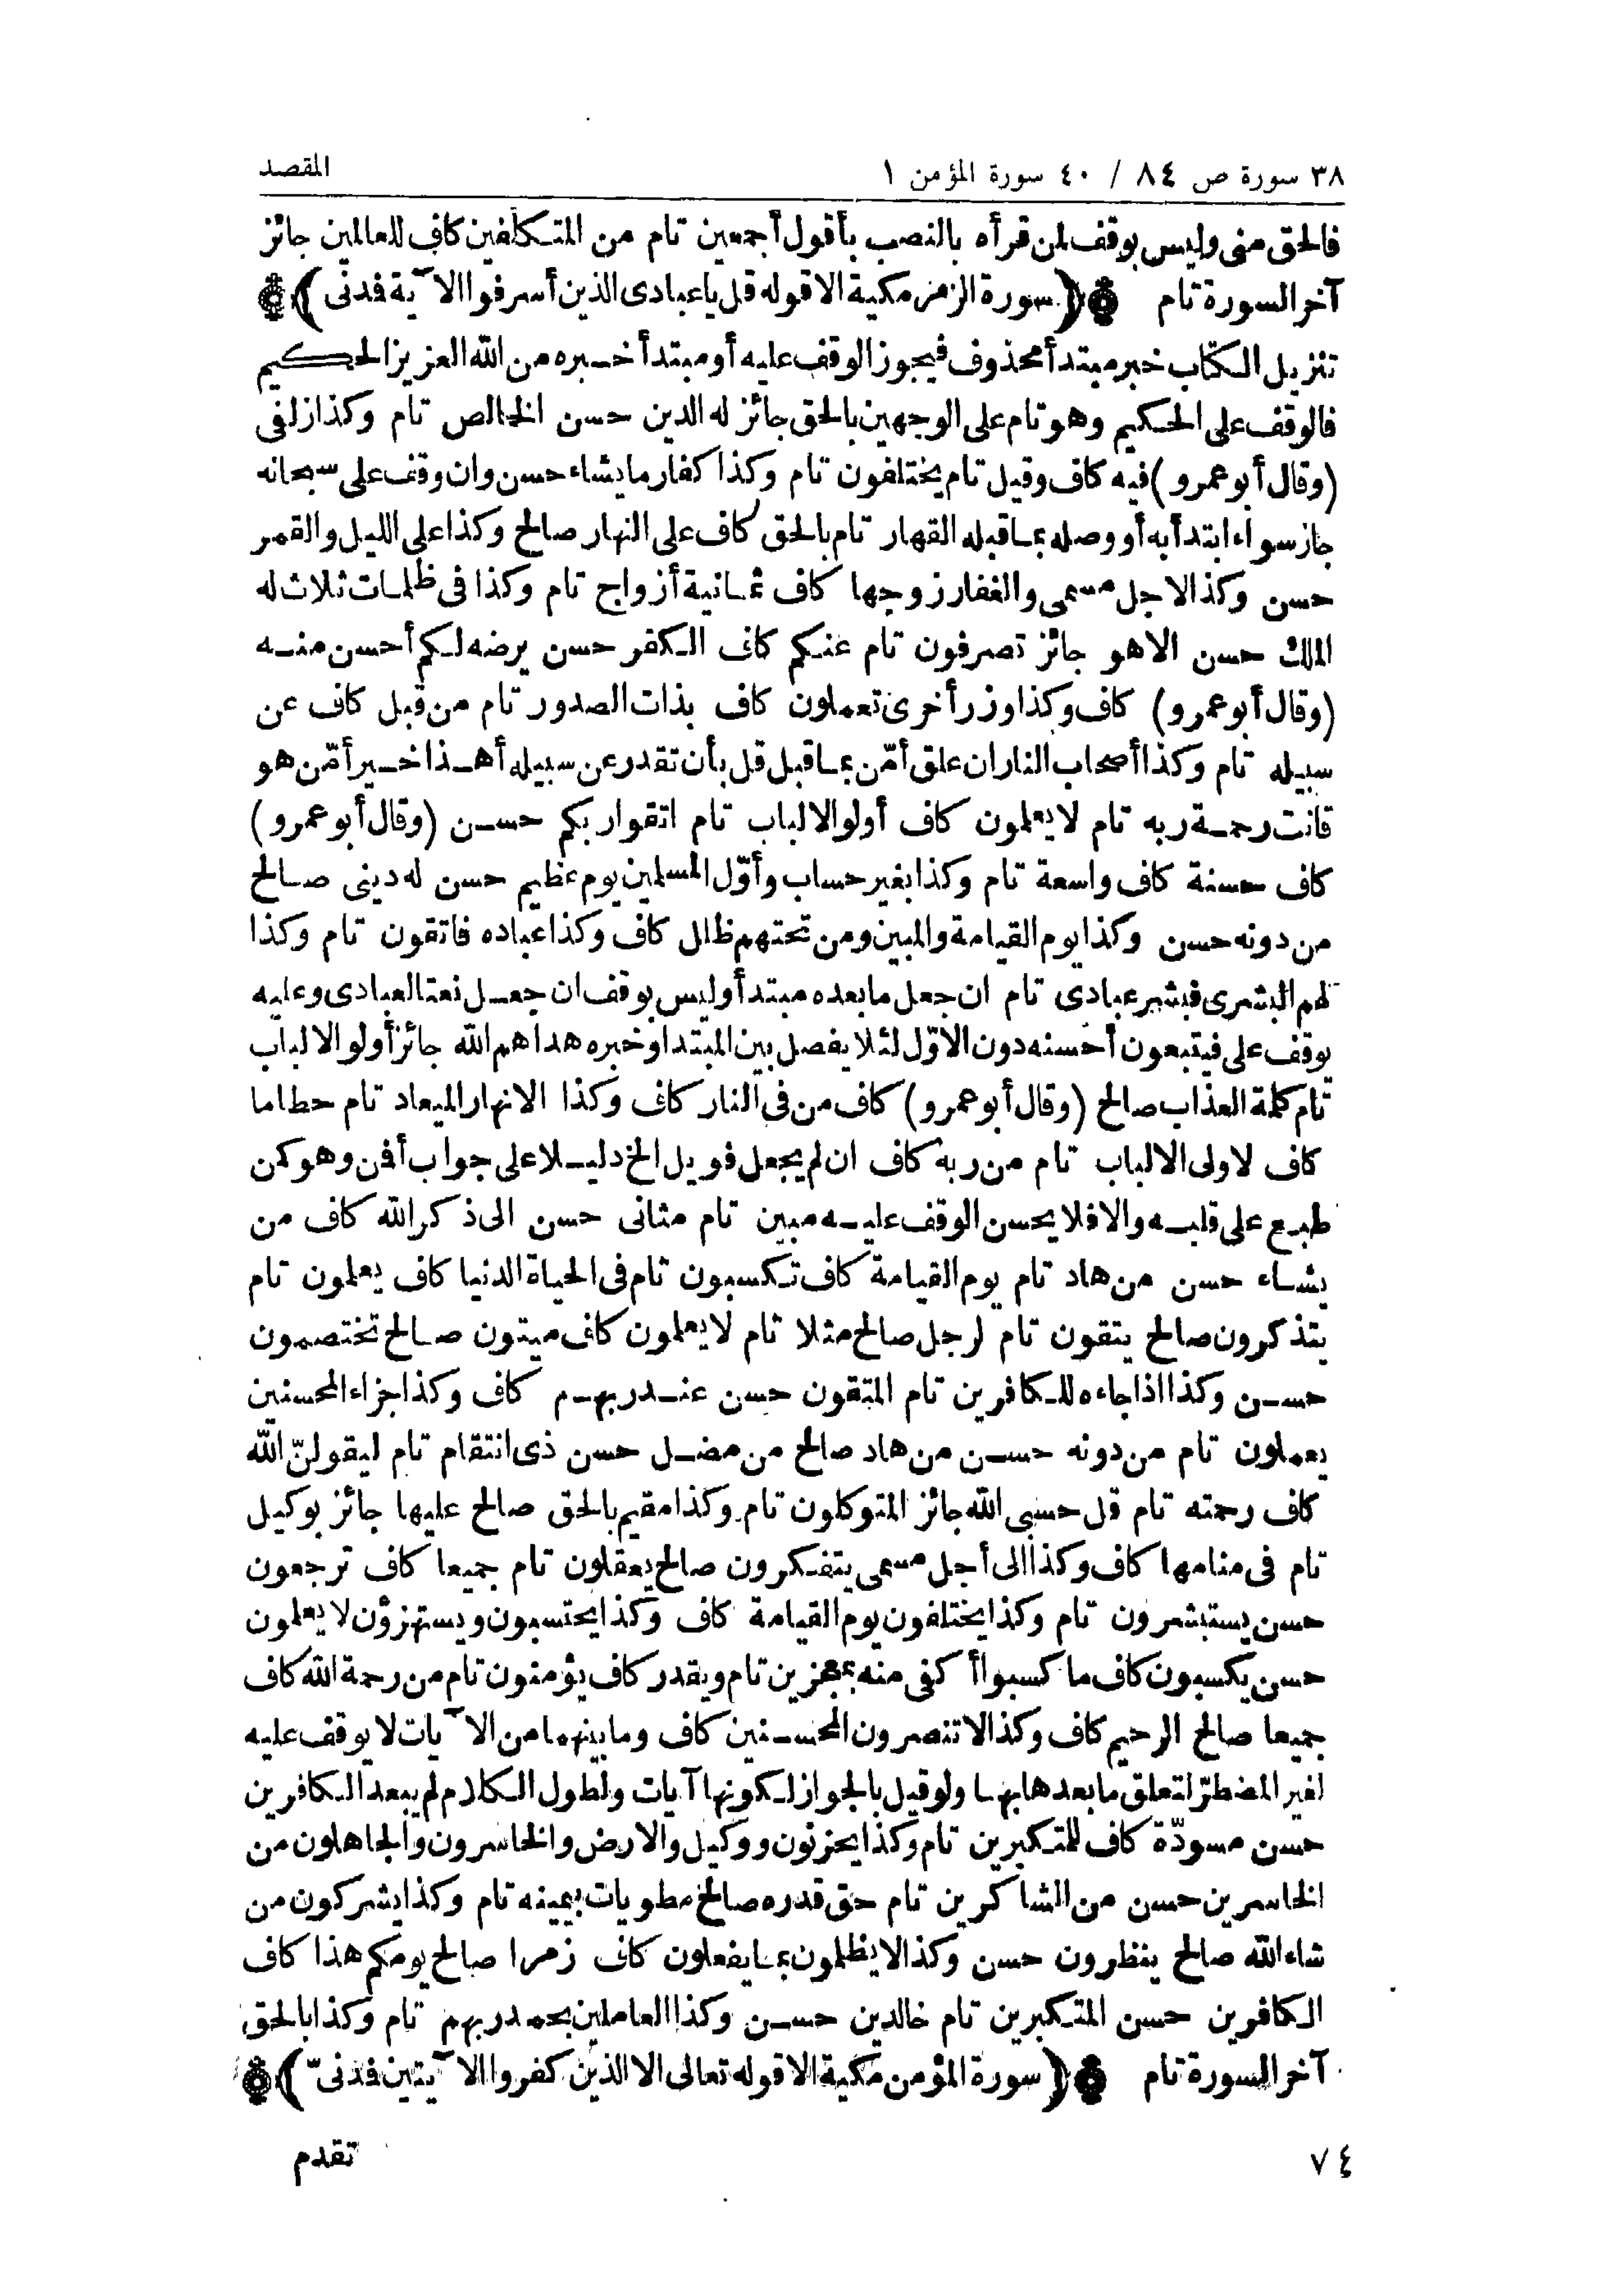 ٣٨ سورة ص ٨٤ / ٤٠ سورة المؤمن ١ المقصد
فالحق منى وليس بوقف لمن قرأه بالنصب بأقول أجمعين تام من المتكلفين كاف للعالمين جائز
آخر السورة تام ﴿سورة الزمر مكية الا قوله قل ياعبادى الذين أسرفوا الآية فدنى﴾
تنزيل الكتاب خبر مبتدأ محذوف فيجوز الوقف عليه أو مبتدأ خبره من الله العزيز الحكيم
فالوقف على الحكيم وهو تام على الوجهين بالحق جائز له الدين حسن الخالص تام وكذا زلفى
(وقال أبو عمرو) فيه كاف وقيل تام يختلفون تام وكذا كفار ما يشاء حسن وان وقف على سبحانه
جاز سواء ابتدأ به أو وصله بما قبله القهار تام بالحق كاف على النهار صالح وكذا على الليل والقمر
حسن وكذا لاجل مسمى والغفار زوجها كاف ثمانية أزواج تام وكذا فى ظلمات ثلاث له
الملك حسن الا هو جائز تصرفون تام عنكم كاف الكفر حسن يرضه لكم أحسن منه
(وقال أبو عمرو) كاف وكذا وزر أخرى تعملون كاف بذات الصدور تام من قبل كاف عن
سبيله تام وكذا أصحاب النار ان علق أمّن بما قبل قل بأن تقدر عن سبيله أهذا خير أمّن هو
قانت رحمة ربه تام لا يعلمون كاف أولو الالباب تام اتقوا ربكم حسن (وقال أبو عمرو)
كاف حسنة كاف واسعة تام وكذا بغير حساب وأوّل المسلمين يوم عظيم حسن له دينى صالح
من دونه حسن وكذا يوم القيامة والمبين ومن تحتهم ظلل كاف وكذا عباده فاتقون تام وكذا
لهم البشرى فبشر عبادى تام ان جعل ما بعده مبتدأ وليس بوقف ان جعل نعتا لعبادى وعليه
يوقف على فيتبعون أحسنه دون الاوّل لئلا يفصل بين المبتدا وخبره هداهم الله جائز أولو الالباب
تام كلمة العذاب صالح (وقال أبو عمرو) كاف من فى النار كاف وكذا الانهار الميعاد تام حطاما
كاف لاولى الالباب تام من ربه كاف ان لم يجعل فويل الخ دليلا على جواب أفمن وهو كمن
طبع على قلبه والا فلا يحسن الوقف عليه مبين تام مثانى حسن الى ذكر الله كاف من
يشاء حسن من هاد تام يوم القيامة كاف تكسبون تام فى الحياة الدنيا كاف يعلمون تام
يتذكرون صالح يتقون تام لرجل صالح مثلا تام لا يعلمون كاف ميتون صالح تختصمون
حسن وكذا اذ جاءه للكافرين تام المتقون حسن عند ربهم كاف وكذا جزاء المحسنين
يعملون تام من دونه حسن من هاد صالح من مضل حسن ذى انتقام تام ليقولنّ الله
كاف رحمته تام قل حسبى الله جائز المتوكلون تام وكذا مقيم بالحق صالح عليها جائز بوكيل
تام فى منامها كاف وكذا الى أجل مسمى يتفكرون صالح يعقلون تام جميعا كاف ترجعون
حسن يستبشرون تام وكذا يختلفون يوم القيامة كاف وكذا يحتسبون ويستهزؤن لا يعلمون
حسن يكسبون كاف ما كسبوا أكفى منه بمعجزين تام ويقدر كاف يؤمنون تام من رحمة الله كاف
جميعا صالح الرحيم كاف وكذا لا تنصرون المحسنين كاف وما بينهما من الآيات لا يوقف عليه
لغير المضطرّ لتعلق ما بعدها بها ولو قيل بالجواز لكونها آيات ولطول الكلام لم يبعد الكافرين
حسن مسودّة كاف للمتكبرين تام وكذا يحزنون ووكيل والارض والخاسرون والجاهلون من
الخاسرين حسن من الشاكرين تام حق قدره صالح مطويات بيمينه تام وكذا يشركون من
شاء الله صالح ينظرون حسن وكذا لا يظلمون بما يفعلون كاف زمرا صالح يومكم هذا كاف
الكافرين حسن المتكبرين تام خالدين حسن وكذا العاملين بحمد ربهم تام وكذا بالحق
آخر السورة تام ﴿سورة المؤمن مكية الا قوله تعالى الا الذين كفروا الآيتين فدنىّ﴾
٧٤ تقدم